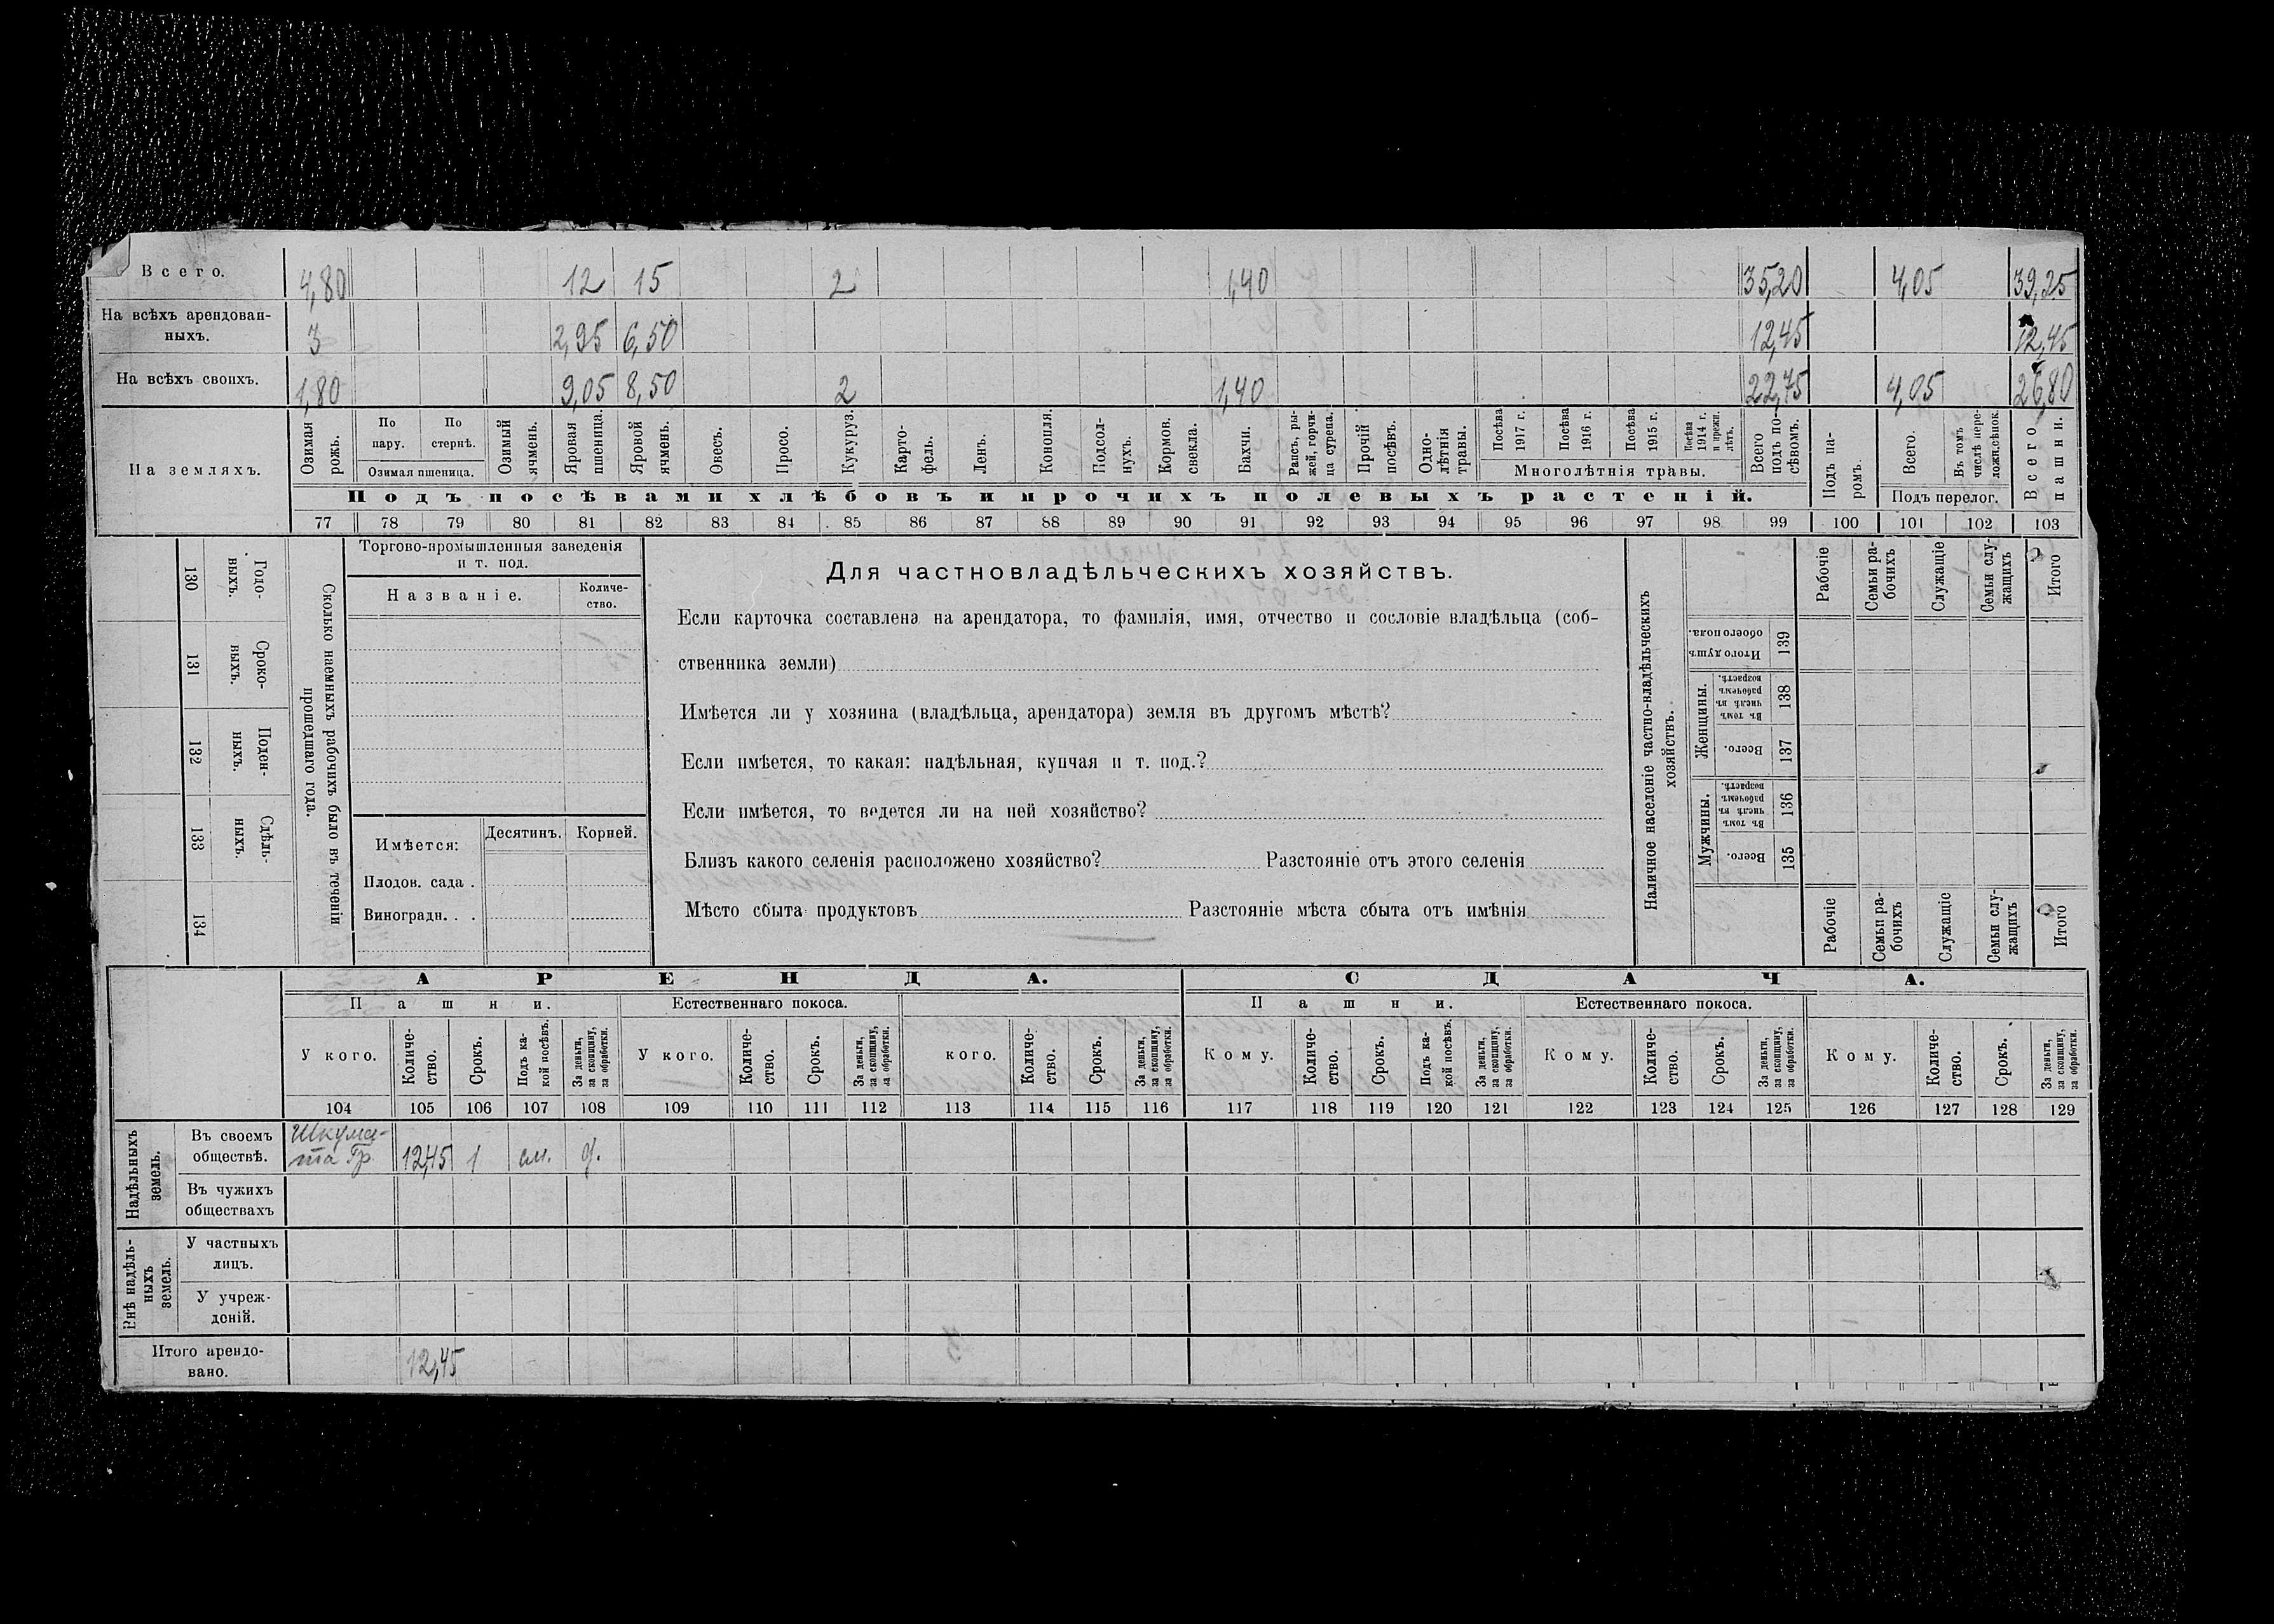 Всего. 4,80 12 15 2 1,40 35,20 4,05 39,25
На всѣхъ арендован-
ныхъ. 3 2,95 6,50 12,45 12,45
На всѣхъ своихъ. 1,80 9,05 8,50 2 1,40 22,75 4,05 26,80
На земляхъ.
Озимая рожь.
По пару.
По стернѣ.
Озимая пшеница.
Озимый ячмень.
Яровая пшеница.
Яровой ячмень.
Овесъ.
Просо.
Кукуруз.
Карто-
фель.
Ленъ.
Конопля.
Подсол-
нухъ.
Кормов. свекла.
Бахчи.
Рапсъ, ры-
жей, горчи-
ца сурепа.
Прочій посѣвъ.
Одно-
лѣтнія травы.
Посѣва 1917 г.
Посѣва 1916 г.
Посѣва 1915 г.
Посѣва 1914 г. и прежн. лѣтъ.
Многолѣтнія травы.
Всего подъ по-
сѣвомъ.
Подъ па-
ромъ.
Всего.
Въ томъ числѣ пере-
ложн. сѣнок.
Подъ перелог.
Всего пашни.
Подъ посѣвами хлѣбовъ и прочихъ полевыхъ растеній.
77 78 79 80 81 82 83 84 85 86 87 88 89 90 91 92 93 94 95 96 97 98 99 100 101 102 103
130 Годо-
ныхъ.
131 Сроко-
ныхъ.
132 Поден-
ныхъ.
133 Сдѣль-
ныхъ.
134
Сколько наемныхъ рабочихъ было въ теченіи
прошедшаго года.
Торгово-промышленныя заведенія
и т. под.
Названіе.
Количе-
ство.
Имѣется:
Десятинъ. Корней.
Плодов. сада .
Виноградн. . .
Для частновладѣльческихъ хозяйствъ.
Если карточка составлена на арендатора, то фамилія, имя, отчество и сословіе владѣльца (соб-
ственника земли)
Имѣется ли у хозяина (владѣльца, арендатора) земля въ другомъ мѣстѣ?
Если имѣется, то какая: надѣльная, купчая и т. под.?
Если имѣется, то ведется ли на ней хозяйство?
Близъ какого селенія расположено хозяйство? Разстояніе отъ этого селенія
Мѣсто сбыта продуктовъ Разстояніе мѣста сбыта отъ имѣнія
Наличное населеніе частно-владѣльческихъ
хозяйствъ.
Рабочіе
Семьи ра-
бочихъ
Служащіе
Семьи слу-
жащихъ
Итого
Итого душъ обоего пола. 139
Женщины.
Въ томъ числѣ въ рабочемъ возрастѣ. 138
Всего. 137
Мужчины.
Въ томъ числѣ въ рабочемъ возрастѣ. 136
Всего. 135
Рабочіе
Семьи ра-
бочихъ
Служащіе
Семьи слу-
жащихъ
Итого
АРЕНДА. СДАЧА.
Пашни. Естественнаго покоса. Пашни. Естественнаго покоса.
У кого.
Количе-
ство.
Срокъ.
Подъ ка-
кой посѣвъ.
За деньги, за скопщину, за обработки.
У кого.
Количе-
ство.
Срокъ.
За деньги, за скопщину, за обработки.
кого.
Количе-
ство.
Срокъ.
За деньги, за скопщину, за обработки.
Кому.
Количе-
ство.
Срокъ.
Подъ ка-
кой посѣвъ.
За деньги, за скопщину, за обработки.
Кому.
Количе-
ство.
Срокъ.
За деньги, за скопщину, за обработки.
Кому.
Количе-
ство.
Срокъ.
За деньги, за скопщину, за обработки.
104 105 106 107 108 109 110 111 112 113 114 115 116 117 118 119 120 121 122 123 124 125 126 127 128 129
Надѣльныхъ
земель.
Въ своемъ
обществѣ.
Шкума-
та Гр. 12,45 1 см. д.
Въ чужихъ
обществахъ
Внѣ надѣль-
ныхъ
земель.
У частныхъ
лицъ.
У учреж-
деній.
Итого арендо-
вано. 12,45